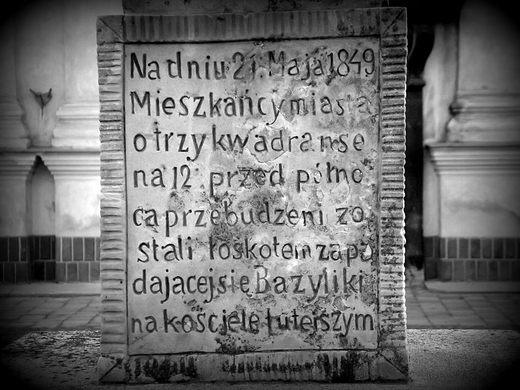 Na dniu 21. Maja 1849
Mieszkańcy miasta
o trzy kwadranse
na 12. przed półno
ca przebudzeni zo
stali łoskotem zapa
dajacej sie Bazyliki
na kościele luterszym